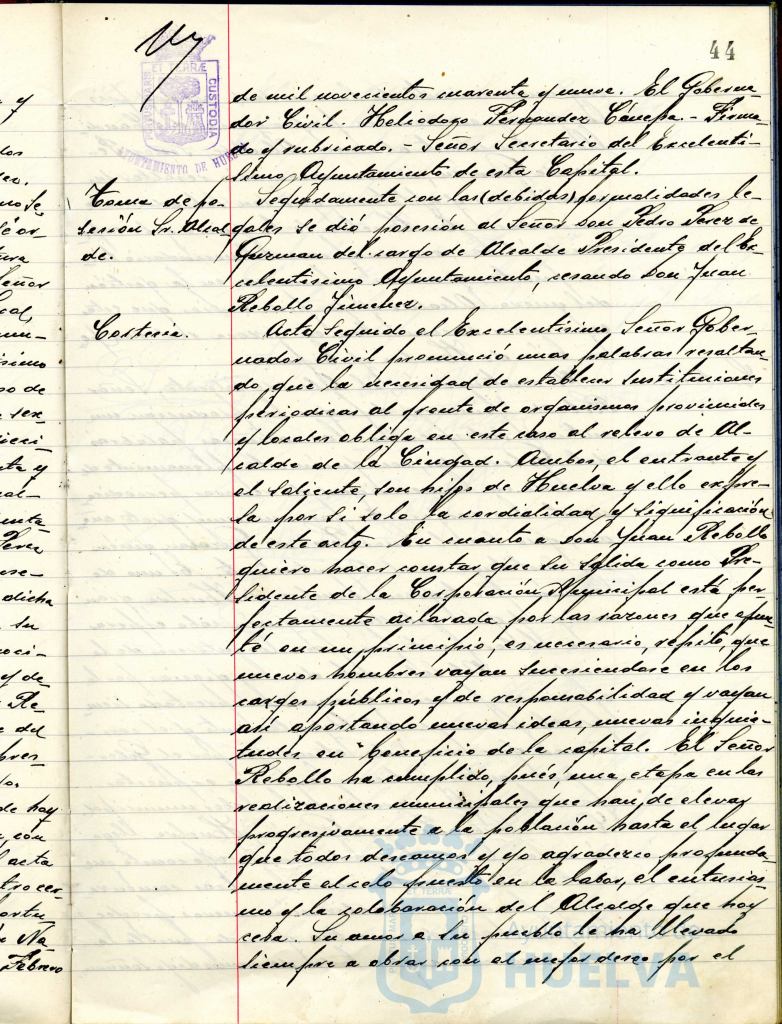 44
CUSTODIA
AYUNTAMIENTO DE HUELVA
de mil novecientos cuarenta y nueve. El Goberna-
dor Civil. Heliodoro Fernandez Cánepa. - Firma-
do y rubricado. - Señor Secretario del Excelentí-
simo Ayuntamiento de esta Capital.
Toma de po-
sesión Sr. Alcal-
de.
Seguidamente con las (debidas) formalidades le-
gales se dió posesión al Señor Don Pedro Perez de
Guzman del cargo de Alcalde Presidente del Ex-
celentisimo Ayuntamiento, cesando Don Juan
Rebollo Jimenez.
Cortesia.
Acto seguido el Excelentisimo Señor Gober-
nador Civil pronunció unas palabras resaltan-
do que la necesidad de establecer sustituciones
periodicas al frente de organismos provinciales
y locales obliga en este caso al relevo de Al-
calde de la Ciudad. Ambos, el entrante y
el saliente son hijos de Huelva y ello expre-
sa por si solo la cordialidad y significación
de este acto. En cuanto a Don Juan Rebollo
quiero hacer constar que su salida como Pre-
sidente de la Corporación Municipal está per-
fectamente aclarada por las razones que apun-
té en un principio; es necesario, repito, que
nuevos hombres vayan sucesiendose en los
cargos públicos y de responsabilidad y vayan
así aportando nuevas ideas, nuevas inquie-
tudes en beneficio de la capital. El Señor
Rebollo ha cumplido, pués, una etapa en las
realizaciones municipales que han de elevar
progresivamente a la población hasta el lugar
que todos deseamos y yo agradezco profunda-
mente el celo puesto en la labor, el entusias-
mo y la colaboración del Alcalde que hoy
cesa. Su amor a su pueblo le ha llevado
siempre a obrar con el mejor deseo por el
Ayuntamiento de
HUELVA